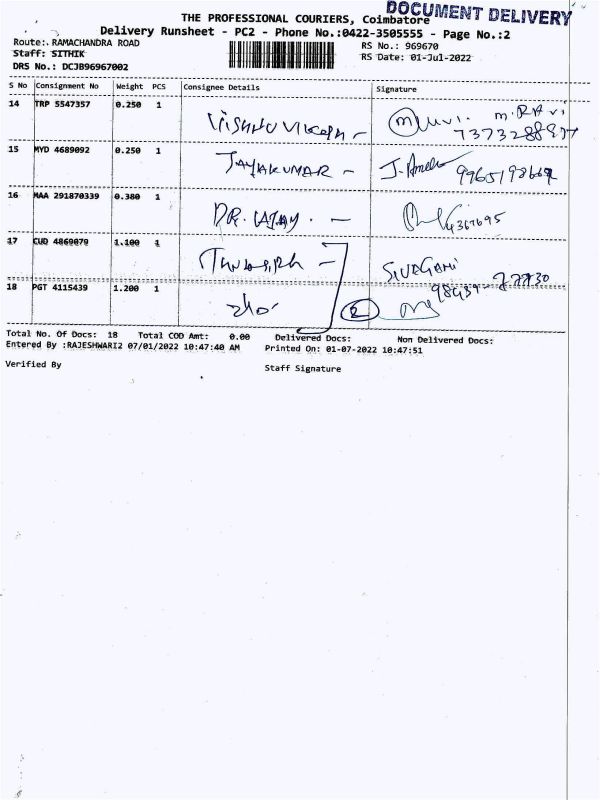 DOCUMENT DELIVERY
THE PROFESSIONAL COURIERS, Coimbatore
Delivery Runsheet - PC2 - Phone No.:0422-3505555 - Page No.:2
Route:. RAMACHANDRA ROAD RS No.: 969670
Staff: SITHIK RS Date: 01-Jul-2022
DRS No.: DCJB96967002
S No Consignment No Weight PCS Consignee Details Signature
14 TRP 5547357 0.250 1 M.RAVI
15 MYD 4689092 0.250 1 JAYAKUMAR -
16 MAA 291870339 0.380 1 DR.
17 CUD 4869079 1.100 1 SIVAGAMI
18 PGT 4115439 1.200 1 2
Total No. Of Docs: 18 Total COD Amt: 0.00 Delivered Docs: Non Delivered Docs:
Entered By :RAJESHWARI2 07/01/2022 10:47:40 AM Printed On: 01-07-2022 10:47:51
Verified By Staff Signature